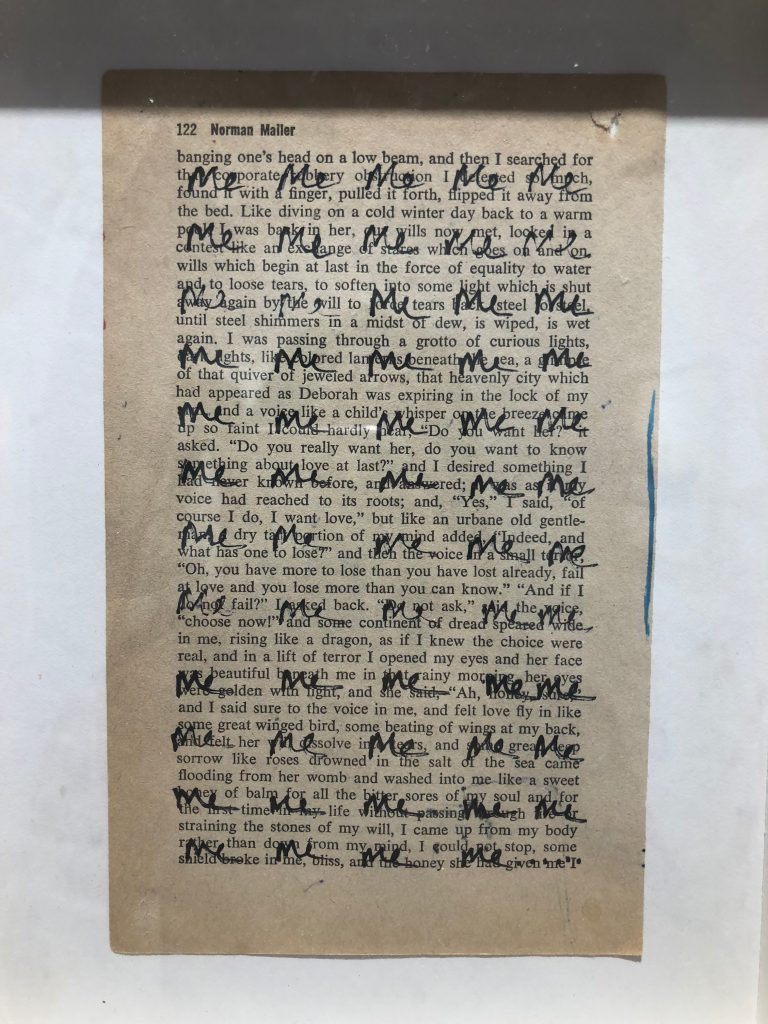 122 Norman Mailer
banging one's head on a low beam, and then I searched for
the corporate rubbery obstruction I detested so much,
Me Me Me Me Me
found it with a finger, pulled it forth, flipped it away from
the bed. Like diving on a cold winter day back to a warm
I was back in her, wills now met, locked in a
Me Me Me Me Me
contest like an exchange of stares which goes on and on
wills which begin at last in the force of equality to water
and to loose tears, to soften into some light which is shut
away again by the will to force tears back, steel to steel,
Me Me Me Me Me
until steel shimmers in a midst of dew, is wiped, is wet
again. I was passing through a grotto of curious lights,
lights, like colored lanterns beneath the sea, a
Me Me Me Me Me
of that quiver of jeweled arrows, that heavenly city which
had appeared as Deborah was expiring in the lock of my
and a voice like a child's whisper on the breeze came
Me Me Me Me Me
up so faint I could hardly hear, “Do you want her?” it
asked. “Do you really want her, do you want to know
something about love at last?” and I desired something I
Me Me Me Me Me
had never known before, and answered; it was as if my
voice had reached to its roots; and, “Yes,” I said, “of
course I do, I want love,” but like an urbane old gentle-
man, a dry tart portion of my mind added, “Indeed, and
Me Me Me Me Me
what has one to lose?” and then the voice in a small terror,
“Oh, you have more to lose than you have lost already, fail
at love and you lose more than you can know.” “And if I
do not fail?” I asked back. “Do not ask,” said the voice,
Me Me Me Me Me
“choose now!” and some continent of dread speared wide
in me, rising like a dragon, as if I knew the choice were
real, and in a lift of terror I opened my eyes and her face
was beautiful beneath me in that rainy morning, her eyes
Me Me Me Me Me
were golden with light, and she said, “Ah, honey, sure,”
and I said sure to the voice in me, and felt love fly in like
some great winged bird, some beating of wings at my back,
and felt her will dissolve into tears, and some great deep
Me Me Me Me Me
sorrow like roses drowned in the salt of the sea came
flooding from her womb and washed into me like a sweet
honey of balm for all the bitter sores of my soul and for
Me Me Me Me Me
the first time in my life without passing through fire or
straining the stones of my will, I came up from my body
rather than down from my mind, I could not stop, some
Me Me Me Me .....
shield broke in me, bliss, and the honey she had given me I